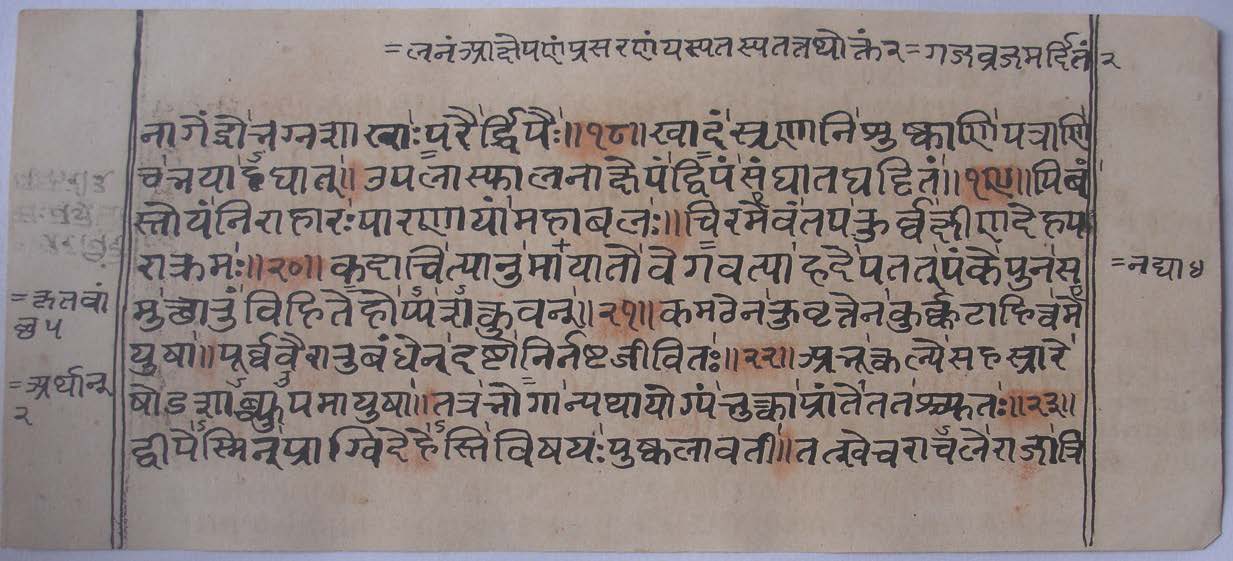 =लनं आक्षेपणं प्रसरणं यस्य तस्य तत् तथोक्तं २ =गजव्रजमर्दितं २
नागेंद्रो भग्नशाखाः परैर्द्विपैः॥१८॥ खादंस्तृणानि शुष्काणि पत्राणि
च भयादघात्॥ उपलास्फालनाक्षेपद्विपसंघातघट्टितं॥१९॥ पिबं
स्तोयं निराहारः पारणायां महाबलः॥ चिरमेवं तपः कुर्वन् क्षीणदेहप
राक्रमः॥२०॥ कदाचित्पातुमायातो वेगवत्या हृदेपतत् पंके पुनः स
मुत्थातुं विहितेहोप्यशक्नुवन्॥२१॥ कमठेन कुवृत्तेन कुर्कटाहित्वमे
युषा॥ पूर्ववैरानुबंधेन दष्टो निर्नष्टजीवितः॥२२॥ अभूत्कल्पे सहस्रारे
षोडशाब्ध्युपमायुषा॥ तत्र भोगान्यथायोग्यं भुक्त्वा प्रांते ततश्च्युतः॥२३॥
द्वीपेस्मिन् प्राग्विदेहेस्ति विषयः पुष्कलावती॥ तत्खेचराचले राजा त्रि
=नद्या ४
=कृतवां
=अर्थान्
२